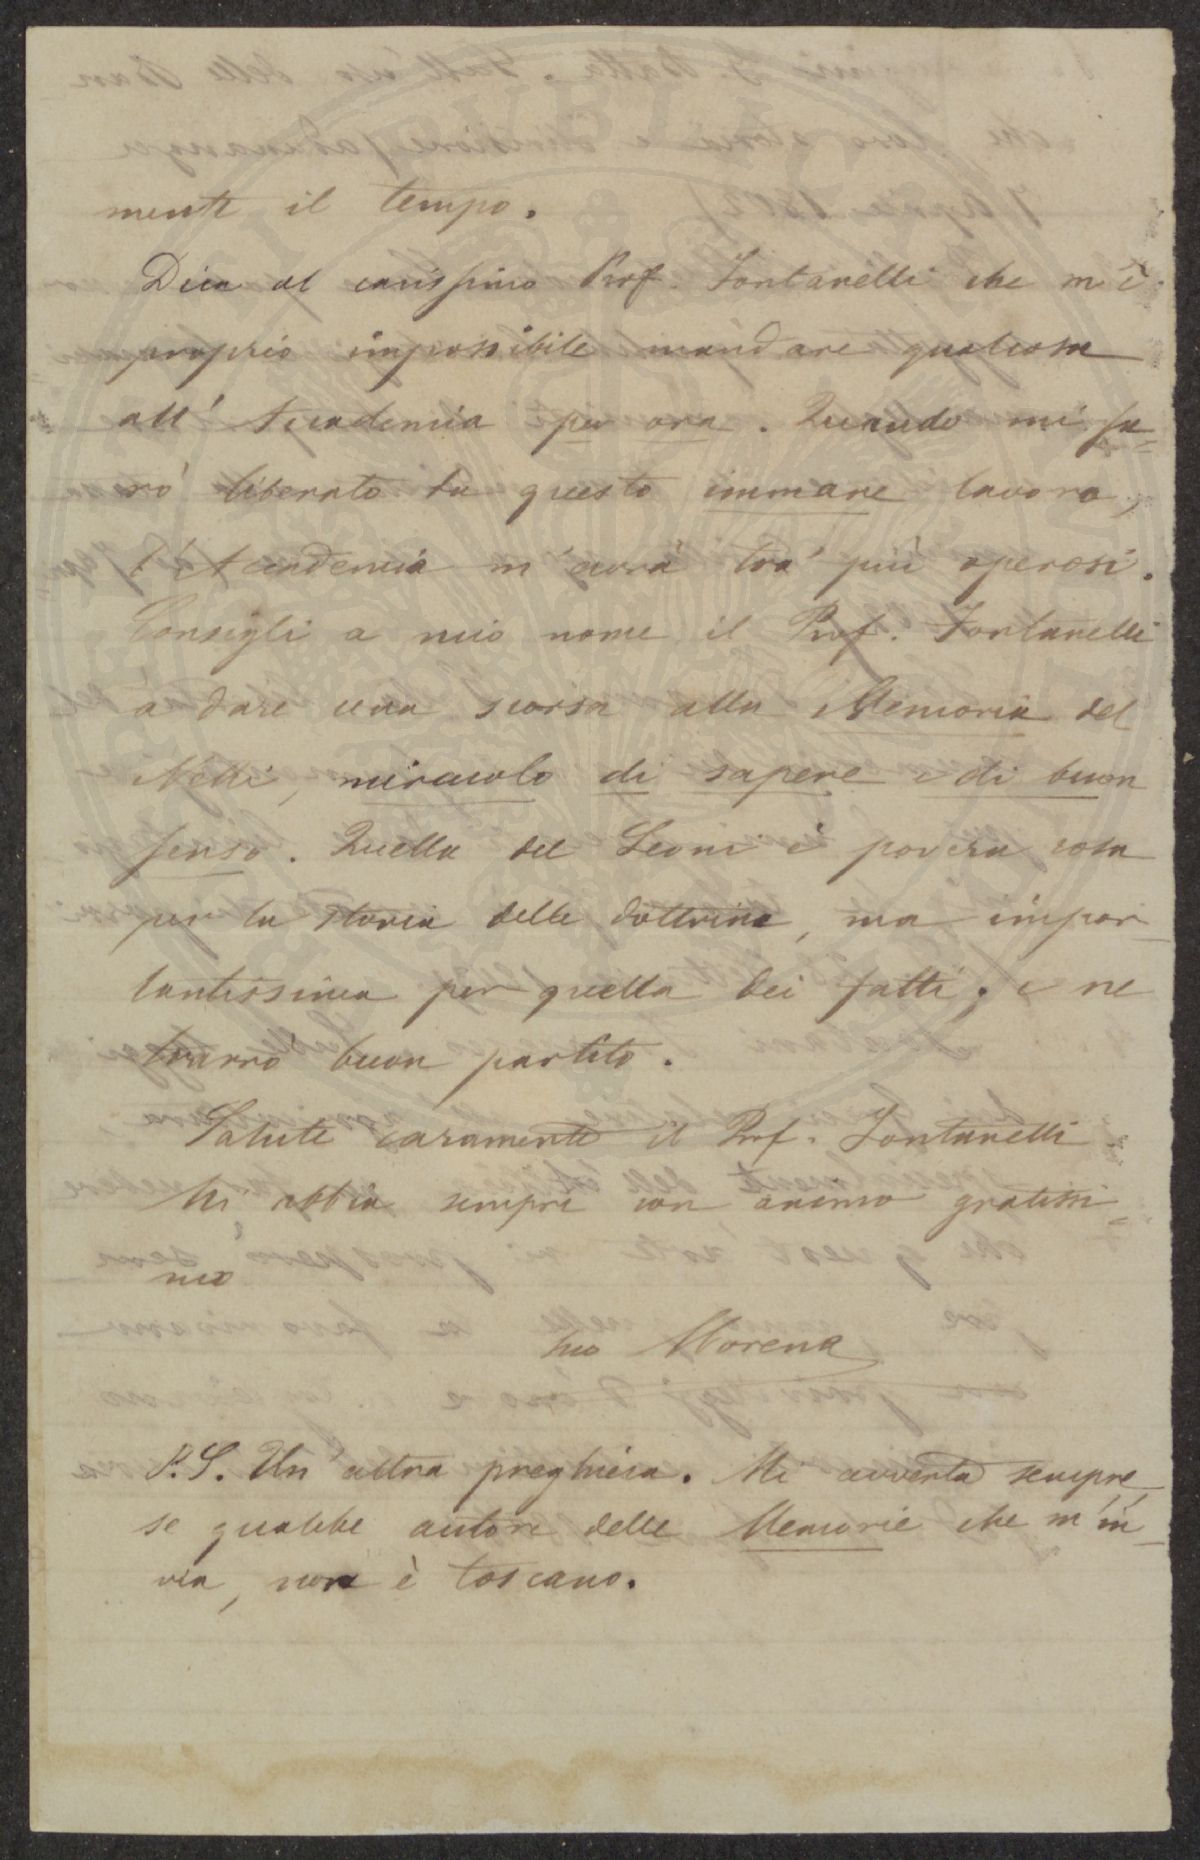 mente il tempo.
Dica al carissimo Prof. Fontanelli che m'è
proprio impossibile mandare qualcosa
all'Accademia per ora. Quando mi sa-
rò liberato da questo immane lavoro,
l'Accademia m'avrà tra' più operosi.
Consigli a mio nome il Prof. Fontanelli
a dare una scorsa alla Memoria del
Nelli, miracolo di sapere e di buon
senso. Quella del Leoni è povera cosa
per la storia delle dottrine, ma impor-
tantissima per quella dei fatti; e ne
trarrò buon partito.
Saluti caramente il Prof. Fontanelli
Mi abbia sempre con animo gratissi-
mo
suo Morena
P.S. Un'altra preghiera. Mi avverta sempre,
se qualche autore delle Memorie che m'in-
via, non è toscano.